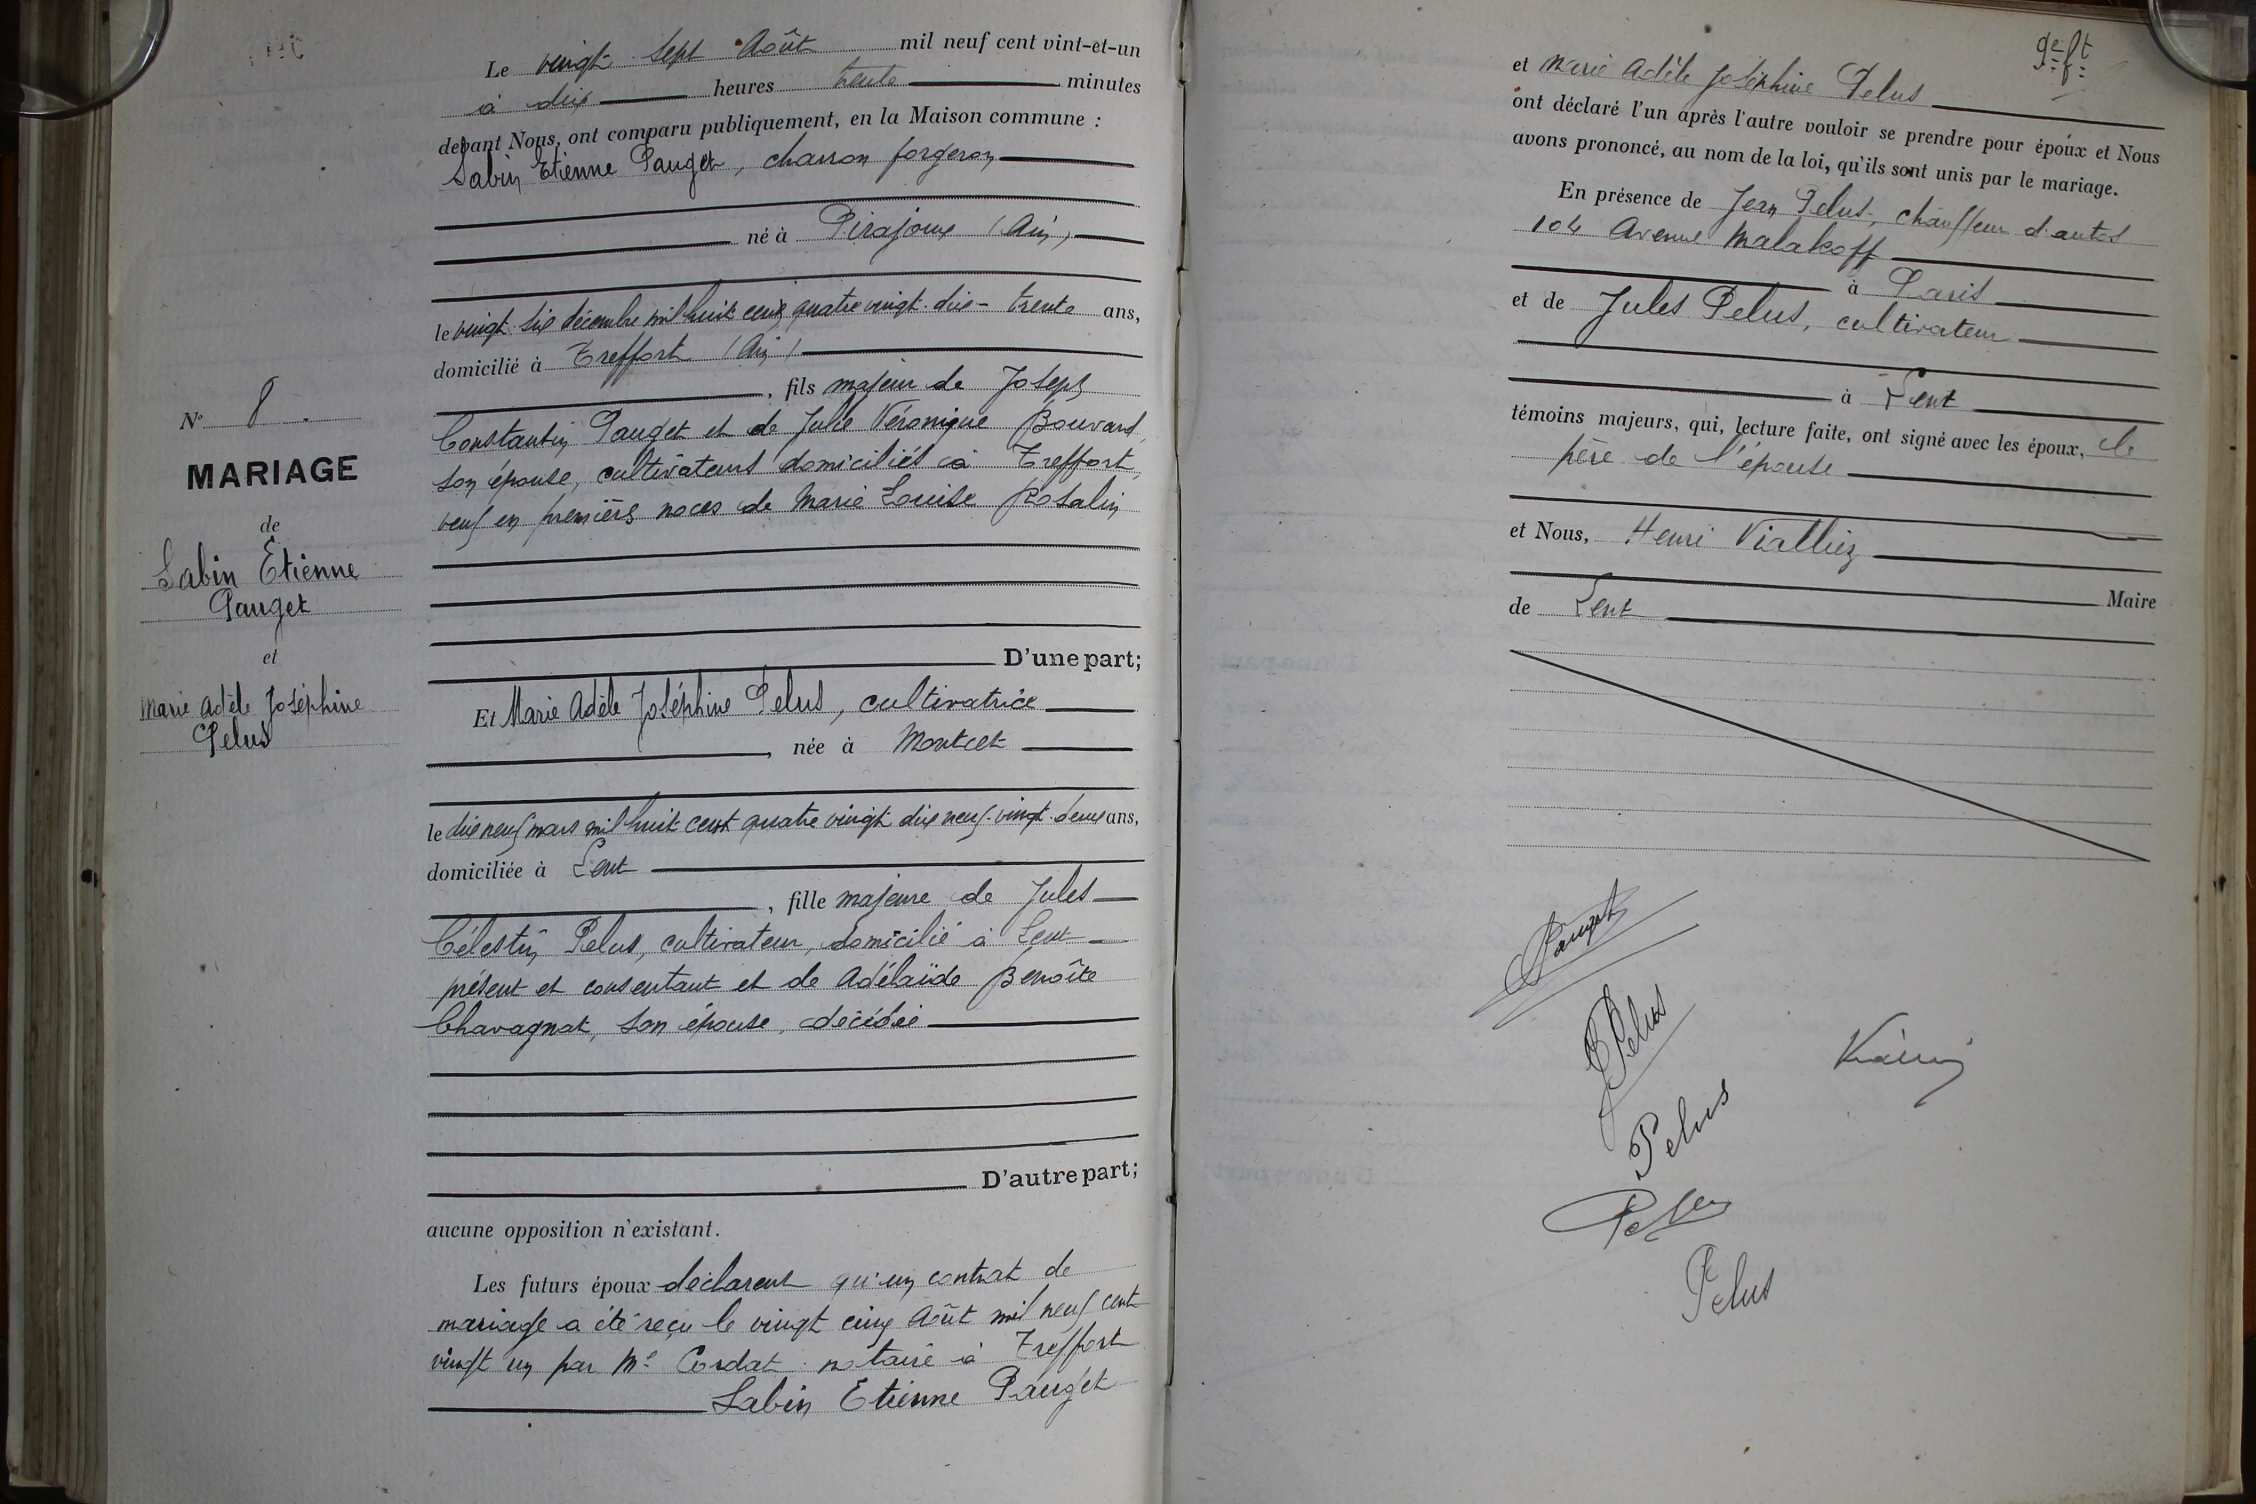 Le vingt sept Août mil neuf cent vint-et-un
à dix heures trente minutes
devant Nous, ont comparu publiquement, en la Maison commune :
Sabin Etienne Pauget, charron forgeron
né à Pirajoux (Ain)
le vingt six décembre mil huit cent quatre vingt dix - trente ans,
domicilié à Treffort (Ain)
, fils majeur de Joseph
Constantin Pauget et de Julie Véronique Bouvard,
son épouse, cultivateurs domiciliés à Treffort,
veuf en premières noces de Marie Louise Rosalin
D'une part;
Et Marie Adèle Joséphine Pelus, cultivatrice
, née à Montcet
le dix neuf mars mil huit cent quatre vingt dix neuf - vingt deux ans,
domiciliée à Lent
, fille majeure de Jules
Célestin Pelus, cultivateur, domicilié à Lent
présent et consentant et de Adélaïde Benoîte
Chavagnat, son épouse, décédée
D'autre part;
aucune opposition n'existant.
Les futurs époux déclarent qu'un contrat de
mariage a été reçu le vingt cinq Août mil neuf cent
vingt un par Me Cordat notaire à Treffort
Sabin Etienne Pauget
No 8.
MARIAGE
de
Sabin Étienne
Pauget
et
Marie Adèle Joséphine
Pelus
9e ft
et Marie Adèle Joséphine Pelus
ont déclaré l'un après l'autre vouloir se prendre pour époux et Nous
avons prononcé, au nom de la loi, qu'ils sont unis par le mariage.
En présence de Jean Pelus, chauffeur d'autos
104 Avenue Malakoff
à Paris
et de Jules Pelus, cultivateur
à Lent
témoins majeurs, qui, lecture faite, ont signé avec les époux, le
père de l'épouse
et Nous, Henri Vialliez
Maire
de Lent
Pauget
Pelus
Pelus
Pelus
Pelus